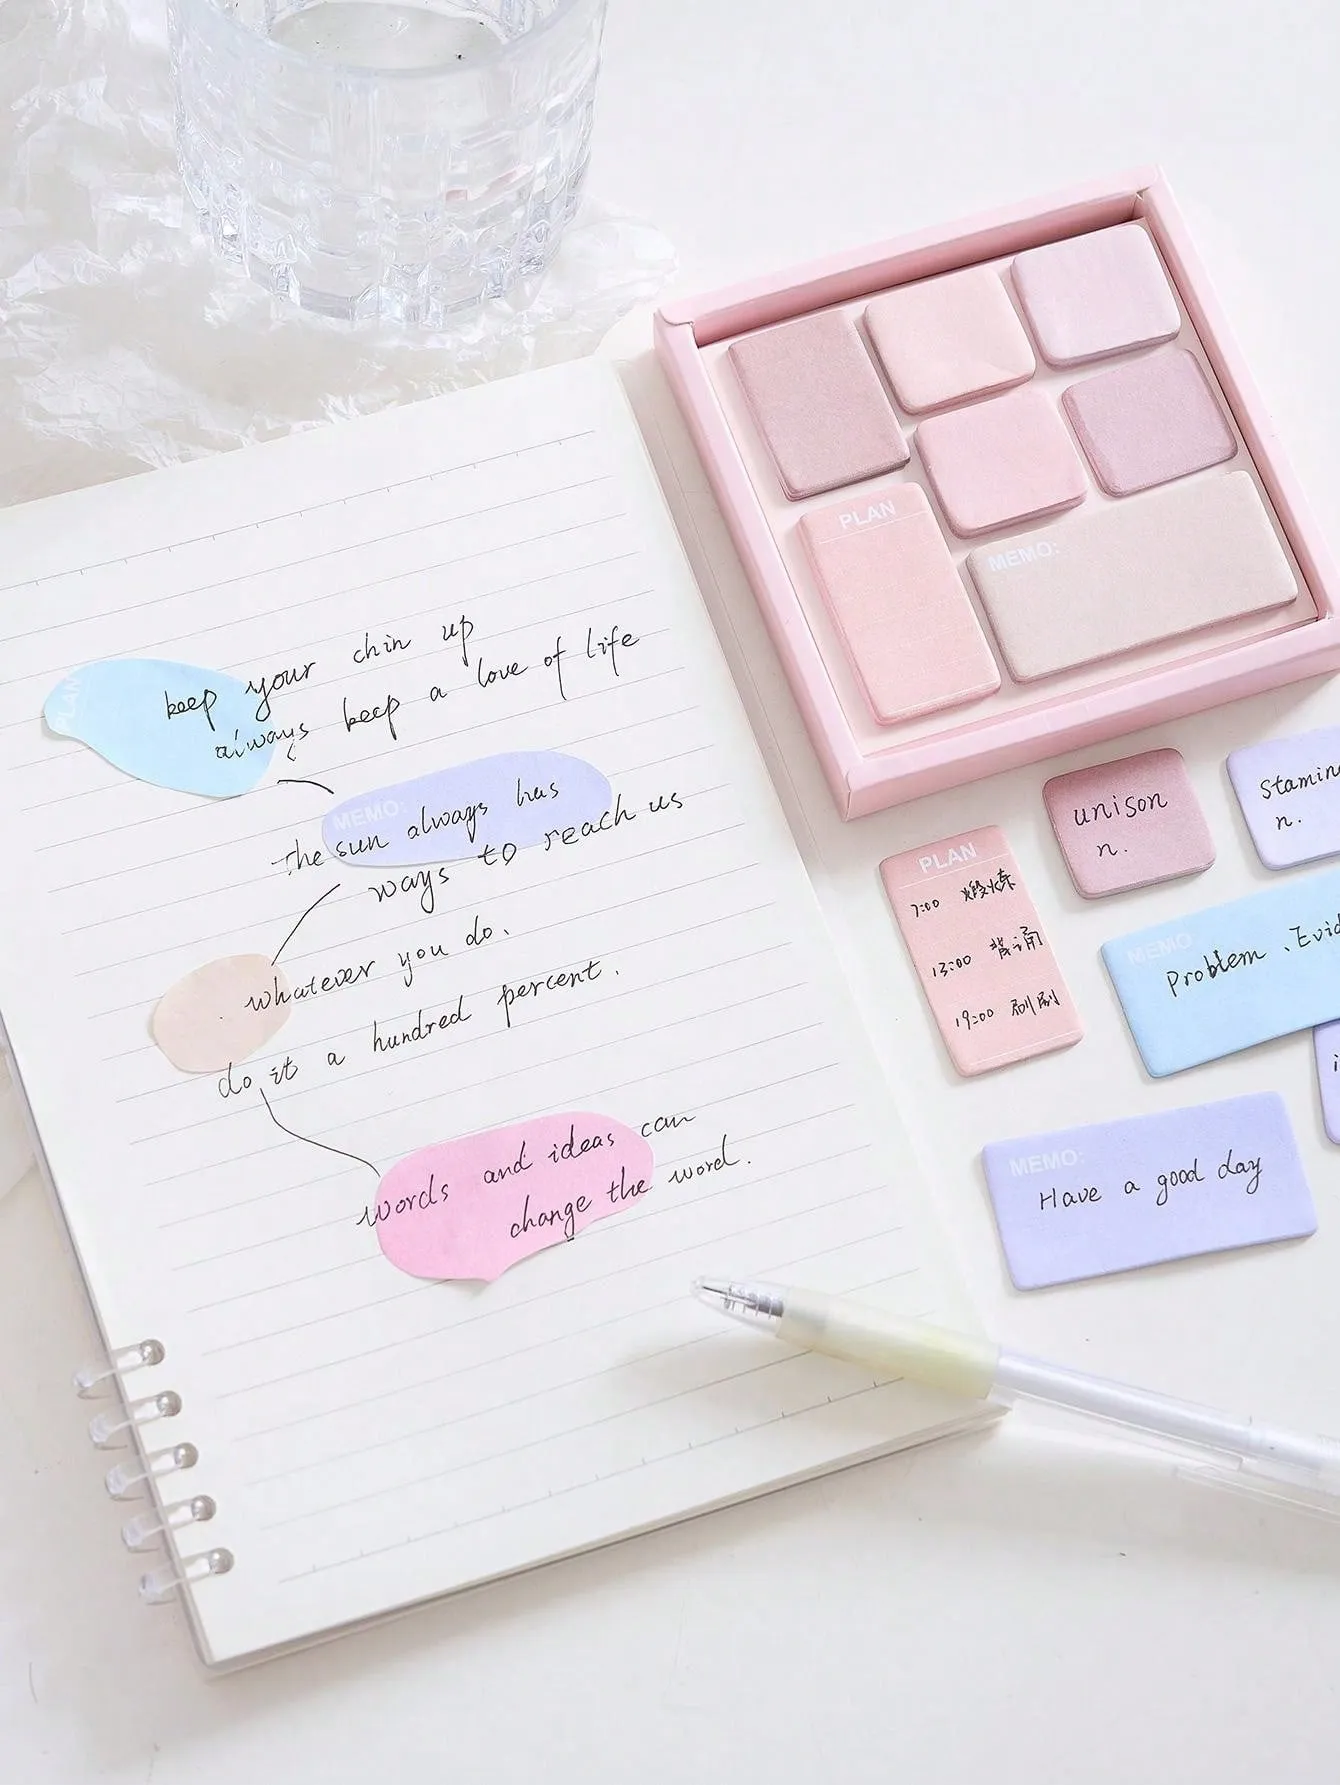 PLAN
keep your chin up
always keep a love of life
MEMO:
the sun always has
ways to reach us
whatever you do.
do it a hundred percent.
words and ideas can
change the word.
PLAN
MEMO:
unison
n.
n.
PLAN
7:00 煅炼
13:00 背诵
19:00 刷刷
MEMO
Problem、
MEMO:
Have a good day